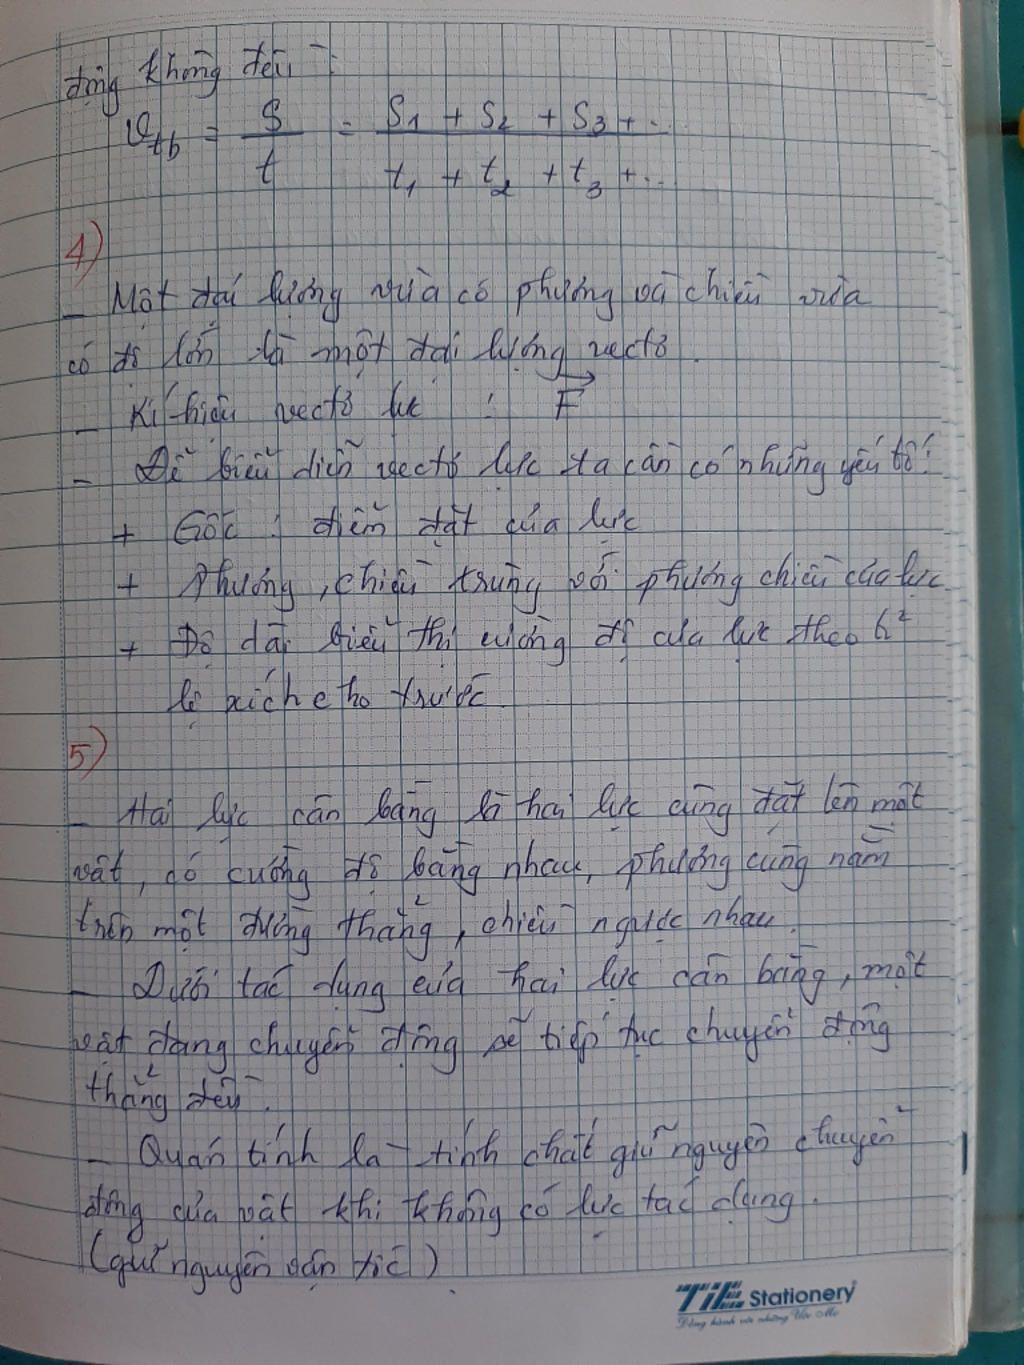 động không đều :
v_tb = S/t = (S1 + S2 + S3 + ...)/(t1 + t2 + t3 + ...)
4)
_ Một đại lượng vừa có phương và chiều vừa
có độ lớn là một đại lượng vectơ.
_ Kí hiệu vectơ lực : F→
_ Để biểu diễn vectơ lực ta cần có những yếu tố:
+ Gốc : điểm đặt của lực
+ Phương, chiều trùng với phương chiều của lực
+ Độ dài biểu thị cường độ của lực theo
lệ xích cho trước
5)
_ Hai lực cân bằng là hai lực cùng đặt lên một
vật, có cường độ bằng nhau, phương cùng nằm
trên một đường thẳng, chiều ngược nhau.
_ Dưới tác dụng của hai lực cân bằng, một
vật đang chuyển động sẽ tiếp tục chuyển động
thẳng đều.
_ Quán tính là tính chất giữ nguyên chuyển
động của vật khi không có lực tác dụng.
(giữ nguyên vận tốc)
TiE Stationery
Đồng hành với những Ước Mơ